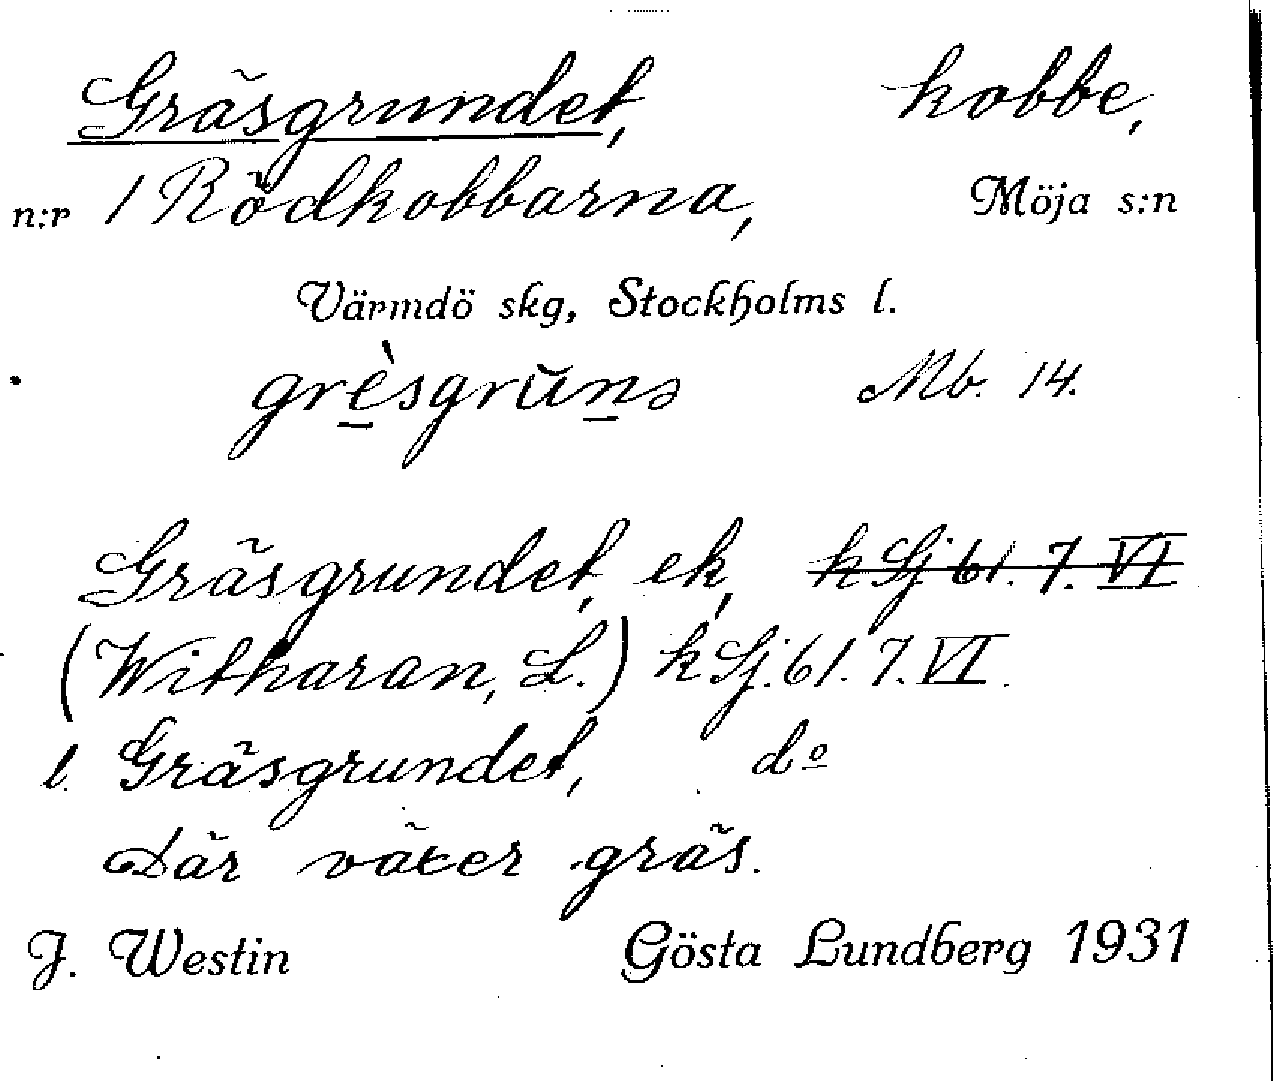 Gräsgrundet, kobbe,
n:r 1 Rödkobbarna, Möja s:n
Värmdö skg, Stockholms l.
grèsgrŭnə Mb. 14.
Gräsgrundet, ek, k Sj 61. 7. VI
(Witharan, L.) k Sj. 61. 7. VI.
l. Gräsgrundet, do
Där växer gräs.
J. Westin Gösta Lundberg 1931